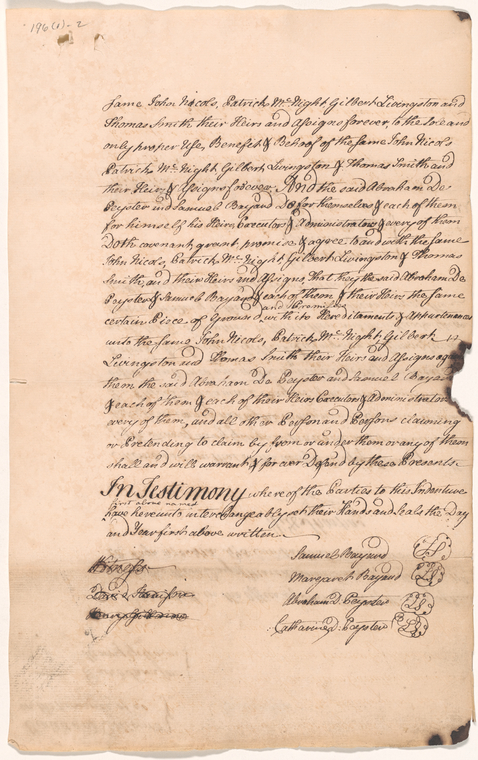 196(1)-2
same John Nicols, Patrick McNight Gilbert Livingston and
Thomas Smith their Heirs and Assigns forever, to the Sole and
only proper Use, Benefit & Behoof of the same John Nicols
Patrick McNight Gilbert Livingston & Thomas Smith and
their Heirs & Assigns forever. And the said Abraham De
Peyster and Samuel Bayard Do for themselves & each of them
for himself his Heirs Executors & Administrators & every of them
Doth covenant grant promise & agree to and with the same
John Nicols, Patrick McNight Gilbert Livingston & Thomas
Smith, and their Heirs and Assigns, That they the said Abraham De
Peyster & Samuel Bayard & each of them & their Heirs the same
and Premises
certain Piece of Ground with its Hereditaments & Appurtenances
unto the same John Nicols, Patrick McNight Gilbert
Livingston and Thomas Smith their Heirs and Assigns
them the said Abraham De Peyster and Samuel Bayard
& each of them & each of their Heirs Executors & Administrators
every of them, and all other Person and Persons claiming
or Pretending to claim by from or under them or any of them
shall and will warrant & for ever Defend by these Presents.
In Testimony where of the Parties to this Indenture
first above named
have hereunto interchangeably set their Hands and Seals the Day
and Year first above written
Samuel Bayard LS
Witness
Margaret Bayard LS
Abraham D Peyster LS
Catharine D: Peyster LS